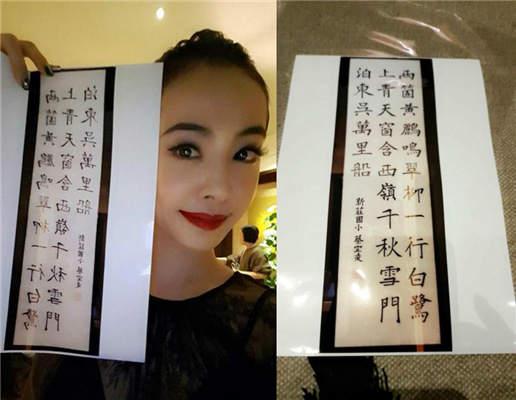 兩箇黃鸝鳴翠柳一行白鷺
上青天窗含西嶺千秋雪門
泊東吳萬里船
新莊國小 蔡宜凌
兩箇黃鸝鳴翠柳一行白鷺
上青天窗含西嶺千秋雪門
泊東吳萬里船
新莊國小 蔡宜凌